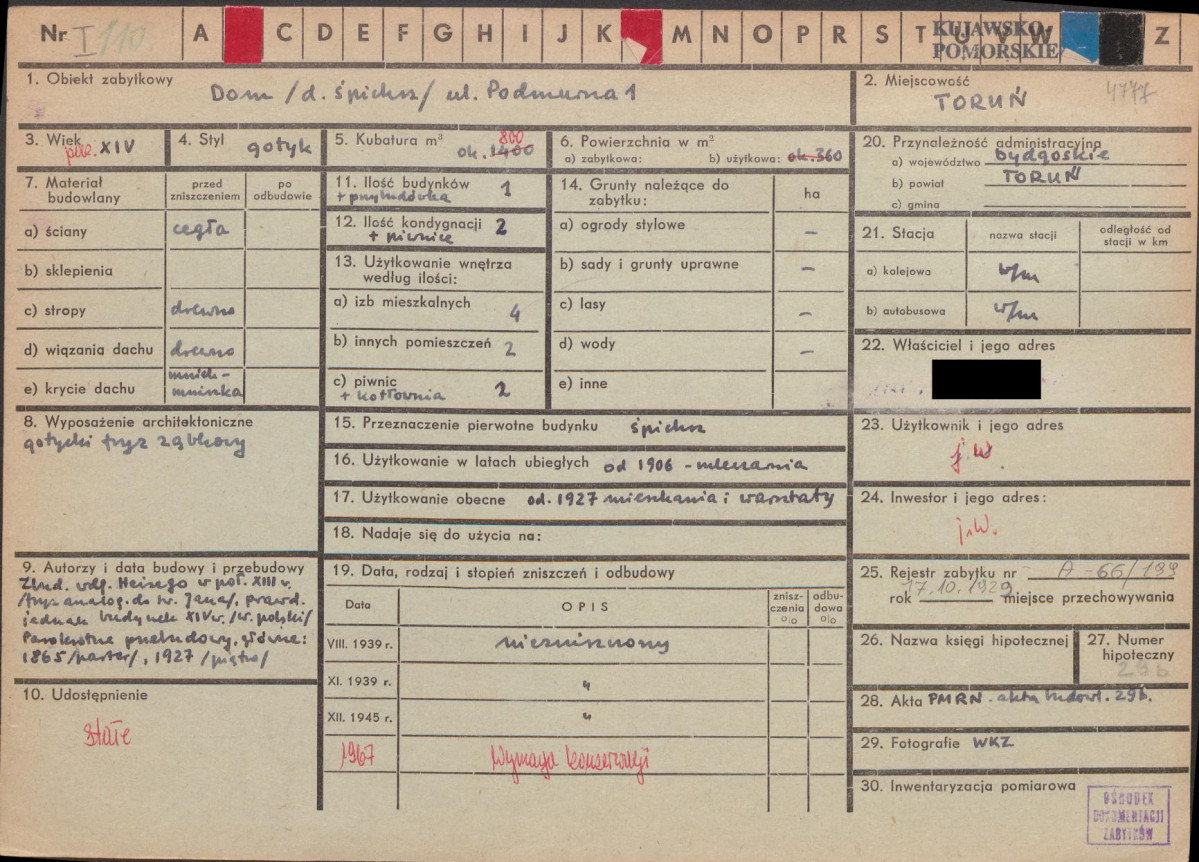 Nr I 110 A C D E F G H I J K M N O P R S T U V W Z
KUJAWSKO-
POMORSKIE
1. Obiekt zabytkowy
Dom /d. śpichrz/ ul. Podmurna 1
2. Miejscowość
TORUŃ
4777
3. Wiek
XIV
4. Styl
gotyk
5. Kubatura m³
800
ok. 1400
6. Powierzchnia w m²
a) zabytkowa: b) użytkowa: ok. 360
7. Materiał budowlany
przed zniszczeniem
po odbudowie
a) ściany cegła
b) sklepienia
c) stropy drewno
d) wiązania dachu drewno
e) krycie dachu mnich-
mniszka
8. Wyposażenie architektoniczne
gotycki fryz ząbkowy
9. Autorzy i data budowy i przebudowy
Zbud. wdg. Heisego w poł. XIII w.
/fryz analog. do św. Jana/, prawd.
jednak budynek XIV w. /w. polski/
Parokrotne przebudowy, główne:
1865 /parter/, 1927 /piętro/
10. Udostępnienie
Stałe
11. Ilość budynków 1
+ przybudówka
12. Ilość kondygnacji 2
+ piwnice
13. Użytkowanie wnętrza
według ilości:
a) izb mieszkalnych 4
b) innych pomieszczeń 2
c) piwnic 2
+ kotłownia
14. Grunty należące do
zabytku:
ha
a) ogrody stylowe –
b) sady i grunty uprawne –
c) lasy –
d) wody –
e) inne
15. Przeznaczenie pierwotne budynku śpichrz
16. Użytkowanie w latach ubiegłych od 1906 - mleczarnia
17. Użytkowanie obecne od. 1927 mieszkania i warsztaty
18. Nadaje się do użycia na:
19. Data, rodzaj i stopień zniszczeń i odbudowy
Data
OPIS
znisz-
czenia
%
odbu-
dowa
%
VIII. 1939 r. niezniszczony
XI. 1939 r. "
XII. 1945 r. "
1967 Wymaga konserwacji
20. Przynależność administracyjna
a) województwo bydgoskie
b) powiat TORUŃ
c) gmina
21. Stacja
nazwa stacji
odległość od
stacji w km
a) kolejowa w/m
b) autobusowa w/m
22. Właściciel i jego adres
23. Użytkownik i jego adres
j.w.
24. Inwestor i jego adres:
j.w.
25. Rejestr zabytku nr A-66/199
17.10.1929
rok miejsce przechowywania
26. Nazwa księgi hipotecznej
27. Numer
hipoteczny
29b
28. Akta PMRN - akta budowl. 29b.
29. Fotografie WKZ
30. Inwentaryzacja pomiarowa
OŚRODEK
DOKUMENTACJI
ZABYTKÓW